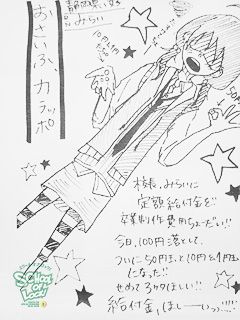 静岡県
みらい
おさいふ、カラッポ
校長、みらいに
定額給付金を!!
卒業制作費用ちょーだい!!
今日、100円落として、
ついに50円玉と10円と1円玉
になった!!
せめて3ケタほしい!!
給付金、ほしーいっっ!!!!
SCHOOL OF LOCK!